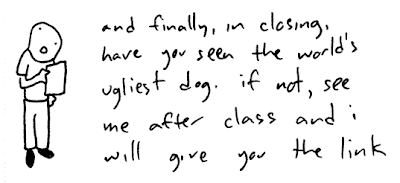 and finally, in closing,
have you seen the world's
ugliest dog. if not, see
me after class and i
will give you the link